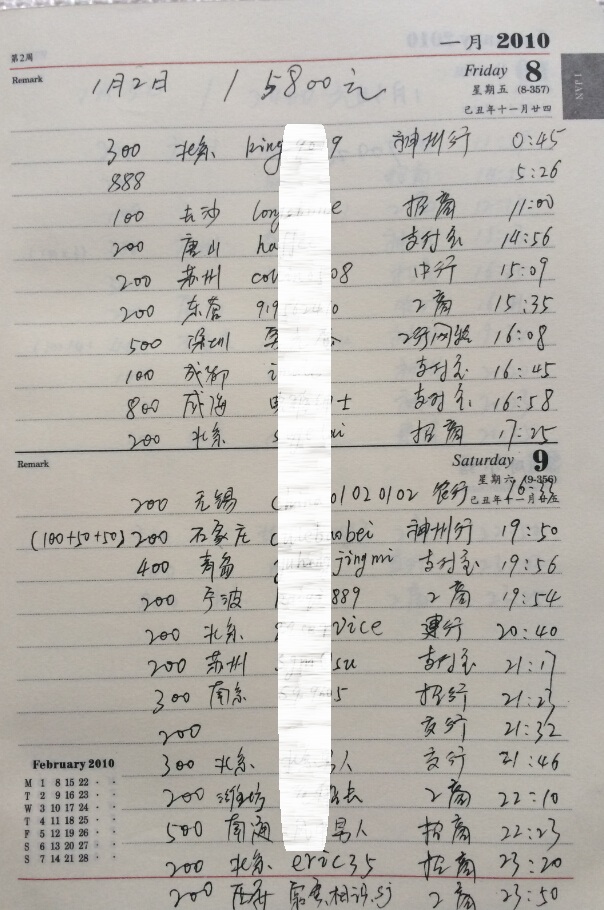 第2周
一月 2010
Remark
Friday 8
星期五 (8-357)
己丑年十一月廿四
1 JAN
1月2日 15800元
300 北京 king 9 神州行 0:45
888 5:26
100 长沙 long e 招商 11:00
200 唐山 ha 支付宝 14:56
200 苏州 co 08 中行 15:09
200 东营 919 0 工商 15:35
500 深圳 工行网转 16:08
100 成都 支付宝 16:45
800 威海 士 支付宝 16:58
200 北京 s i 招商 17:25
Remark
Saturday 9
星期六 (9-356)
200 无锡 01020102 农行
(100+50+50) 200 石家庄 bei 神州行 19:50
400 青岛 jingmi 支付宝 19:56
200 宁波 889 工商 19:54
200 北京 vice 建行 20:40
200 苏州 su 支付宝 21:17
300 南京 5 招行 21:23
200 交行 21:32
300 北京 人 交行 21:46
200 潍坊 工商 22:10
500 南通 男人 招商 22:23
200 北京 eric35 招商 23:20
200 相识.sj 工商 23:50
February 2010
M 1 8 15 22 · ·
T 2 9 16 23 · ·
W 3 10 17 24 · ·
T 4 11 18 25 · ·
F 5 12 19 26 · ·
S 6 13 20 27 · ·
S 7 14 21 28 · ·